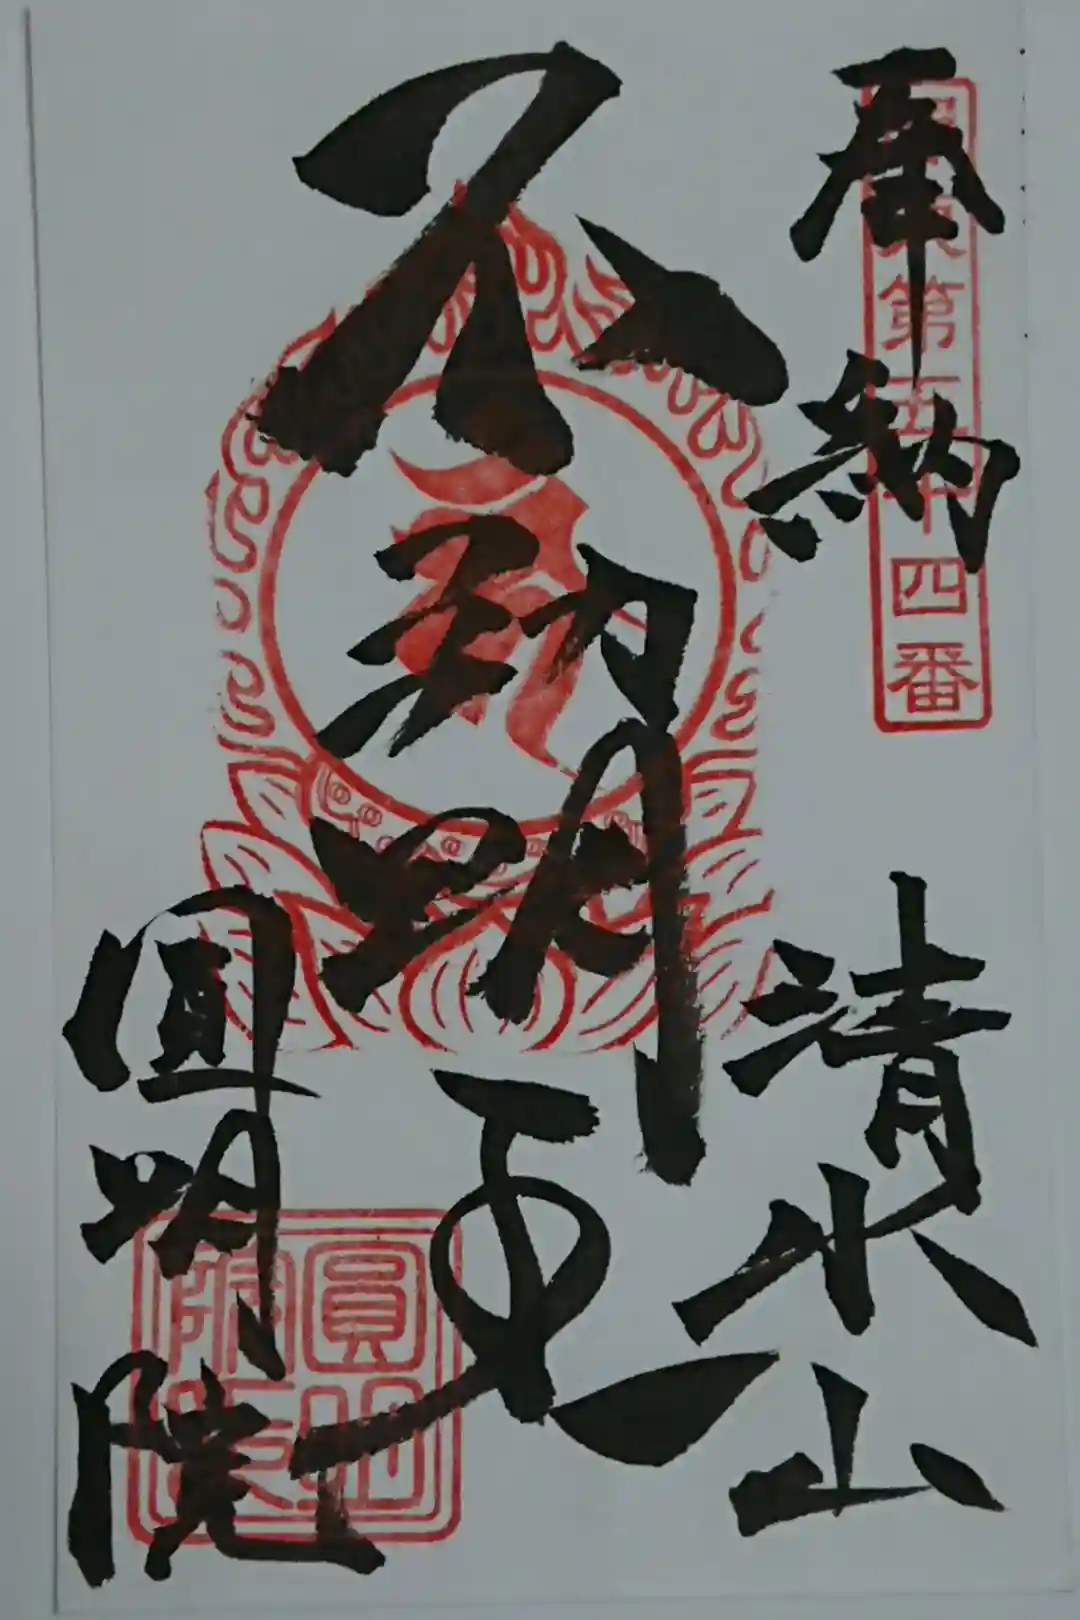 奉納
第五十四番
清水山
不動明王
圓明院